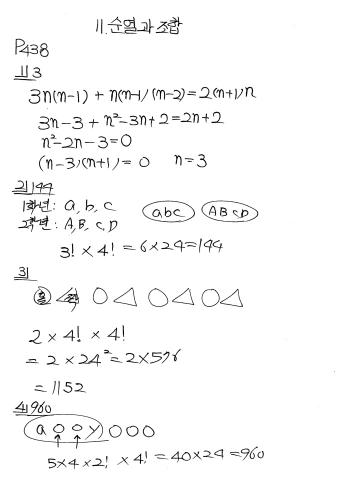 11. 순열과 조합
P438
1) 3
3n(n-1) + n(n-1)(n-2) = 2(n+1)n
3n-3 + n²-3n+2 = 2n+2
n²-2n-3=0
(n-3)(n+1) = 0 n=3
2) 144
1학년: a, b, c abc ABCD
2학년: A, B, C, D
3! × 4! = 6×24=144
3)
홀 짝 ○△ ○△ ○△
2 × 4! × 4!
= 2 × 24² = 2×576
= 1152
4) 960
a ○ ○ y ○○○
5×4×2! × 4! = 40×24 =960